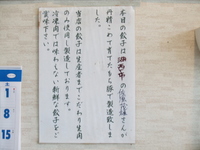 本日の餃子は
の佐藤俊雄さんが
丹精こめて育てたもち豚で製造致しま
した。
当店の餃子は生産者までこだわり生肉
のみ使用し製造しております。
冷凍肉では味わえない新鮮な餃子をご
賞味下さい。
土
1
8
15